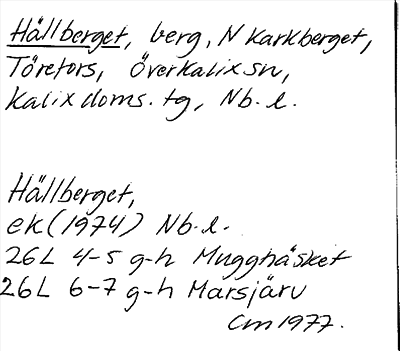 Hällberget, berg, N Karkberget,
Törefors, Överkalix sn,
Kalix doms. tg, Nb. l.
Hällberget,
ek (1974) Nb. l.
26L 4-5 g-h Mugghåsket
26L 6-7 g-h Marsjärv
Cm 1977.